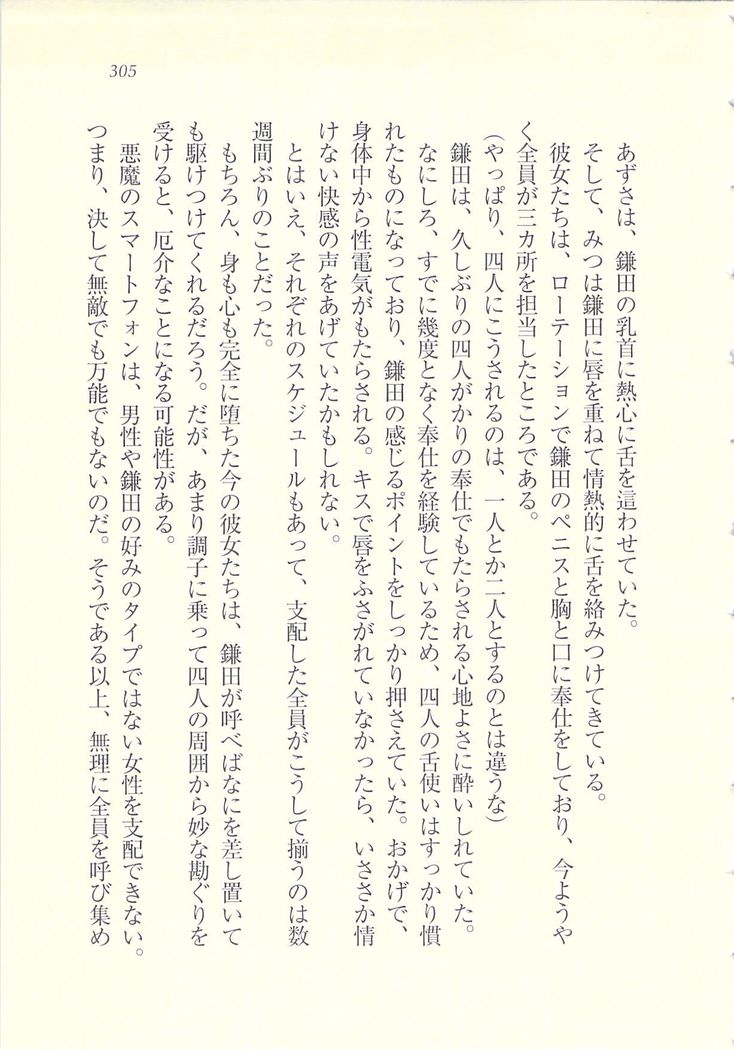 305
あずさは、鎌田の乳首に熱心に舌を這わせていた。
そして、みつは鎌田に唇を重ねて情熱的に舌を絡みつけてきている。
彼女たちは、ローテーションで鎌田のペニスと胸と口に奉仕をしており、今ようや
く全員が三カ所を担当したところである。
（やっぱり、四人にこうされるのは、一人とか二人とするのとは違うな）
鎌田は、久しぶりの四人がかりの奉仕でもたらされる心地よさに酔いしれていた。
なにしろ、すでに幾度となく奉仕を経験しているため、四人の舌使いはすっかり慣
れたものになっており、鎌田の感じるポイントをしっかり押さえていた。おかげで、
身体中から性電気がもたらされる。キスで唇をふさがれていなかったら、いささか情
けない快感の声をあげていたかもしれない。
とはいえ、それぞれのスケジュールもあって、支配した全員がこうして揃うのは数
週間ぶりのことだった。
もちろん、身も心も完全に堕ちた今の彼女たちは、鎌田が呼べばなにを差し置いて
も駆けつけてくれるだろう。だが、あまり調子に乗って四人の周囲から妙な勘ぐりを
受けると、厄介なことになる可能性がある。
悪魔のスマートフォンは、男性や鎌田の好みのタイプではない女性を支配できない。
つまり、決して無敵でも万能でもないのだ。そうである以上、無理に全員を呼び集め